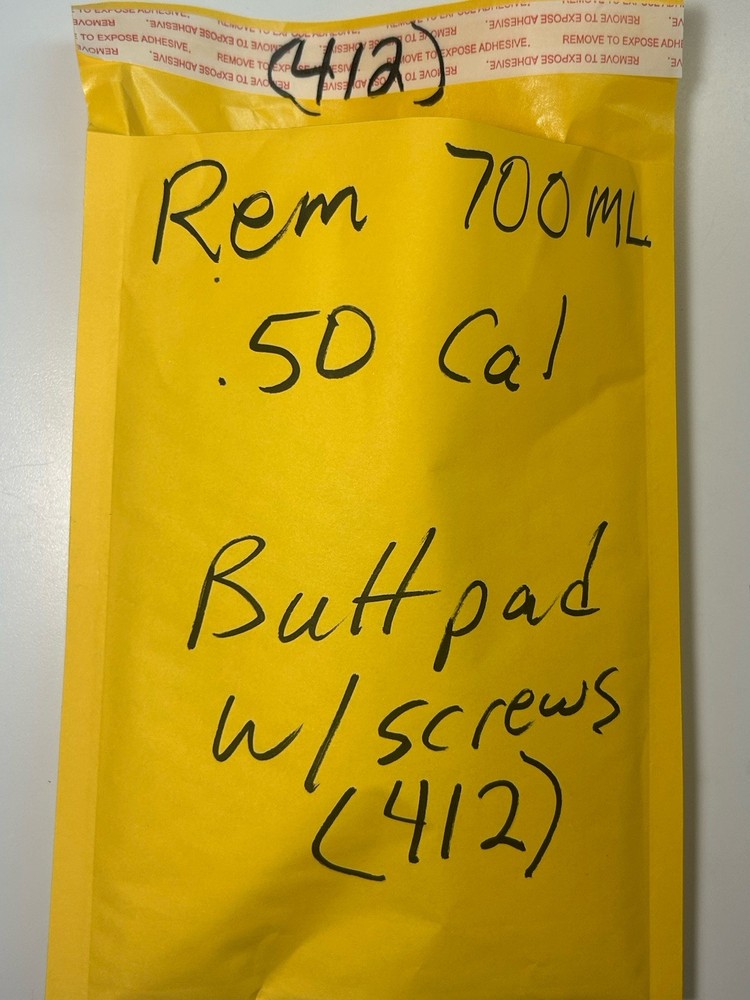 REMOVE TO EXPOSE ADHESIVE.
TO EXPOSE ADHESIVE. REMOVE TO EXPOSE ADHESIVE. REMOVE TO EXPOSE ADHESIVE. REMOVE TO EXPOSE ADHE
REMOVE TO EXPOSE ADHESIVE. REMOVE TO EXPOSE ADHESIVE. REMOVE TO EXPOSE ADHESIVE.
(412)
Rem 700 ML
.50 Cal
Buttpad
w/screws
(412)